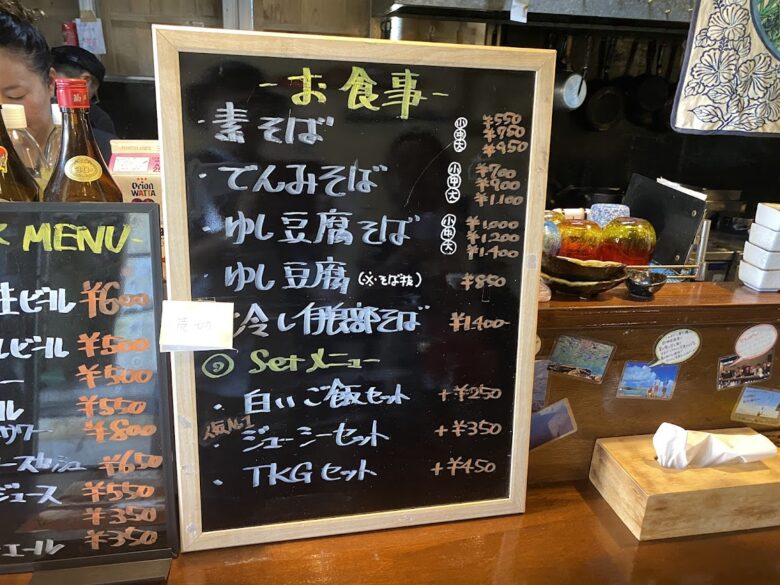 -お食事-
・素そば 小 ¥550
中 ¥750
大 ¥950
・てんみそば 小 ¥700
中 ¥900
大 ¥1,100
・ゆし豆腐そば 小 ¥1,000
中 ¥1,200
大 ¥1,400
・ゆし豆腐(※そば抜) ¥850
冷し伊良部そば ¥1,400
Setメニュー
・白いご飯セット +¥250
人気No.1
・ジューシーセット +¥350
・TKGセット +¥450
MENU-
生ビール ¥600
ルビール ¥500
ー ¥500
ール ¥550
サワー ¥800
¥650
ジュース ¥550
¥350
エール ¥350
Orion
WATTA